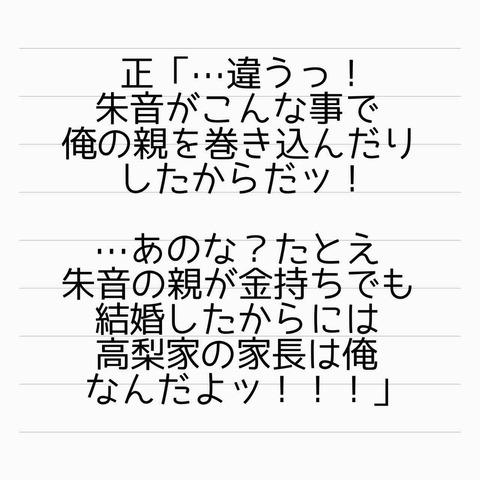 正「…違うっ！
朱音がこんな事で
俺の親を巻き込んだり
したからだッ！
…あのな？たとえ
朱音の親が金持ちでも
結婚したからには
高梨家の家長は俺
なんだよッ！！！」